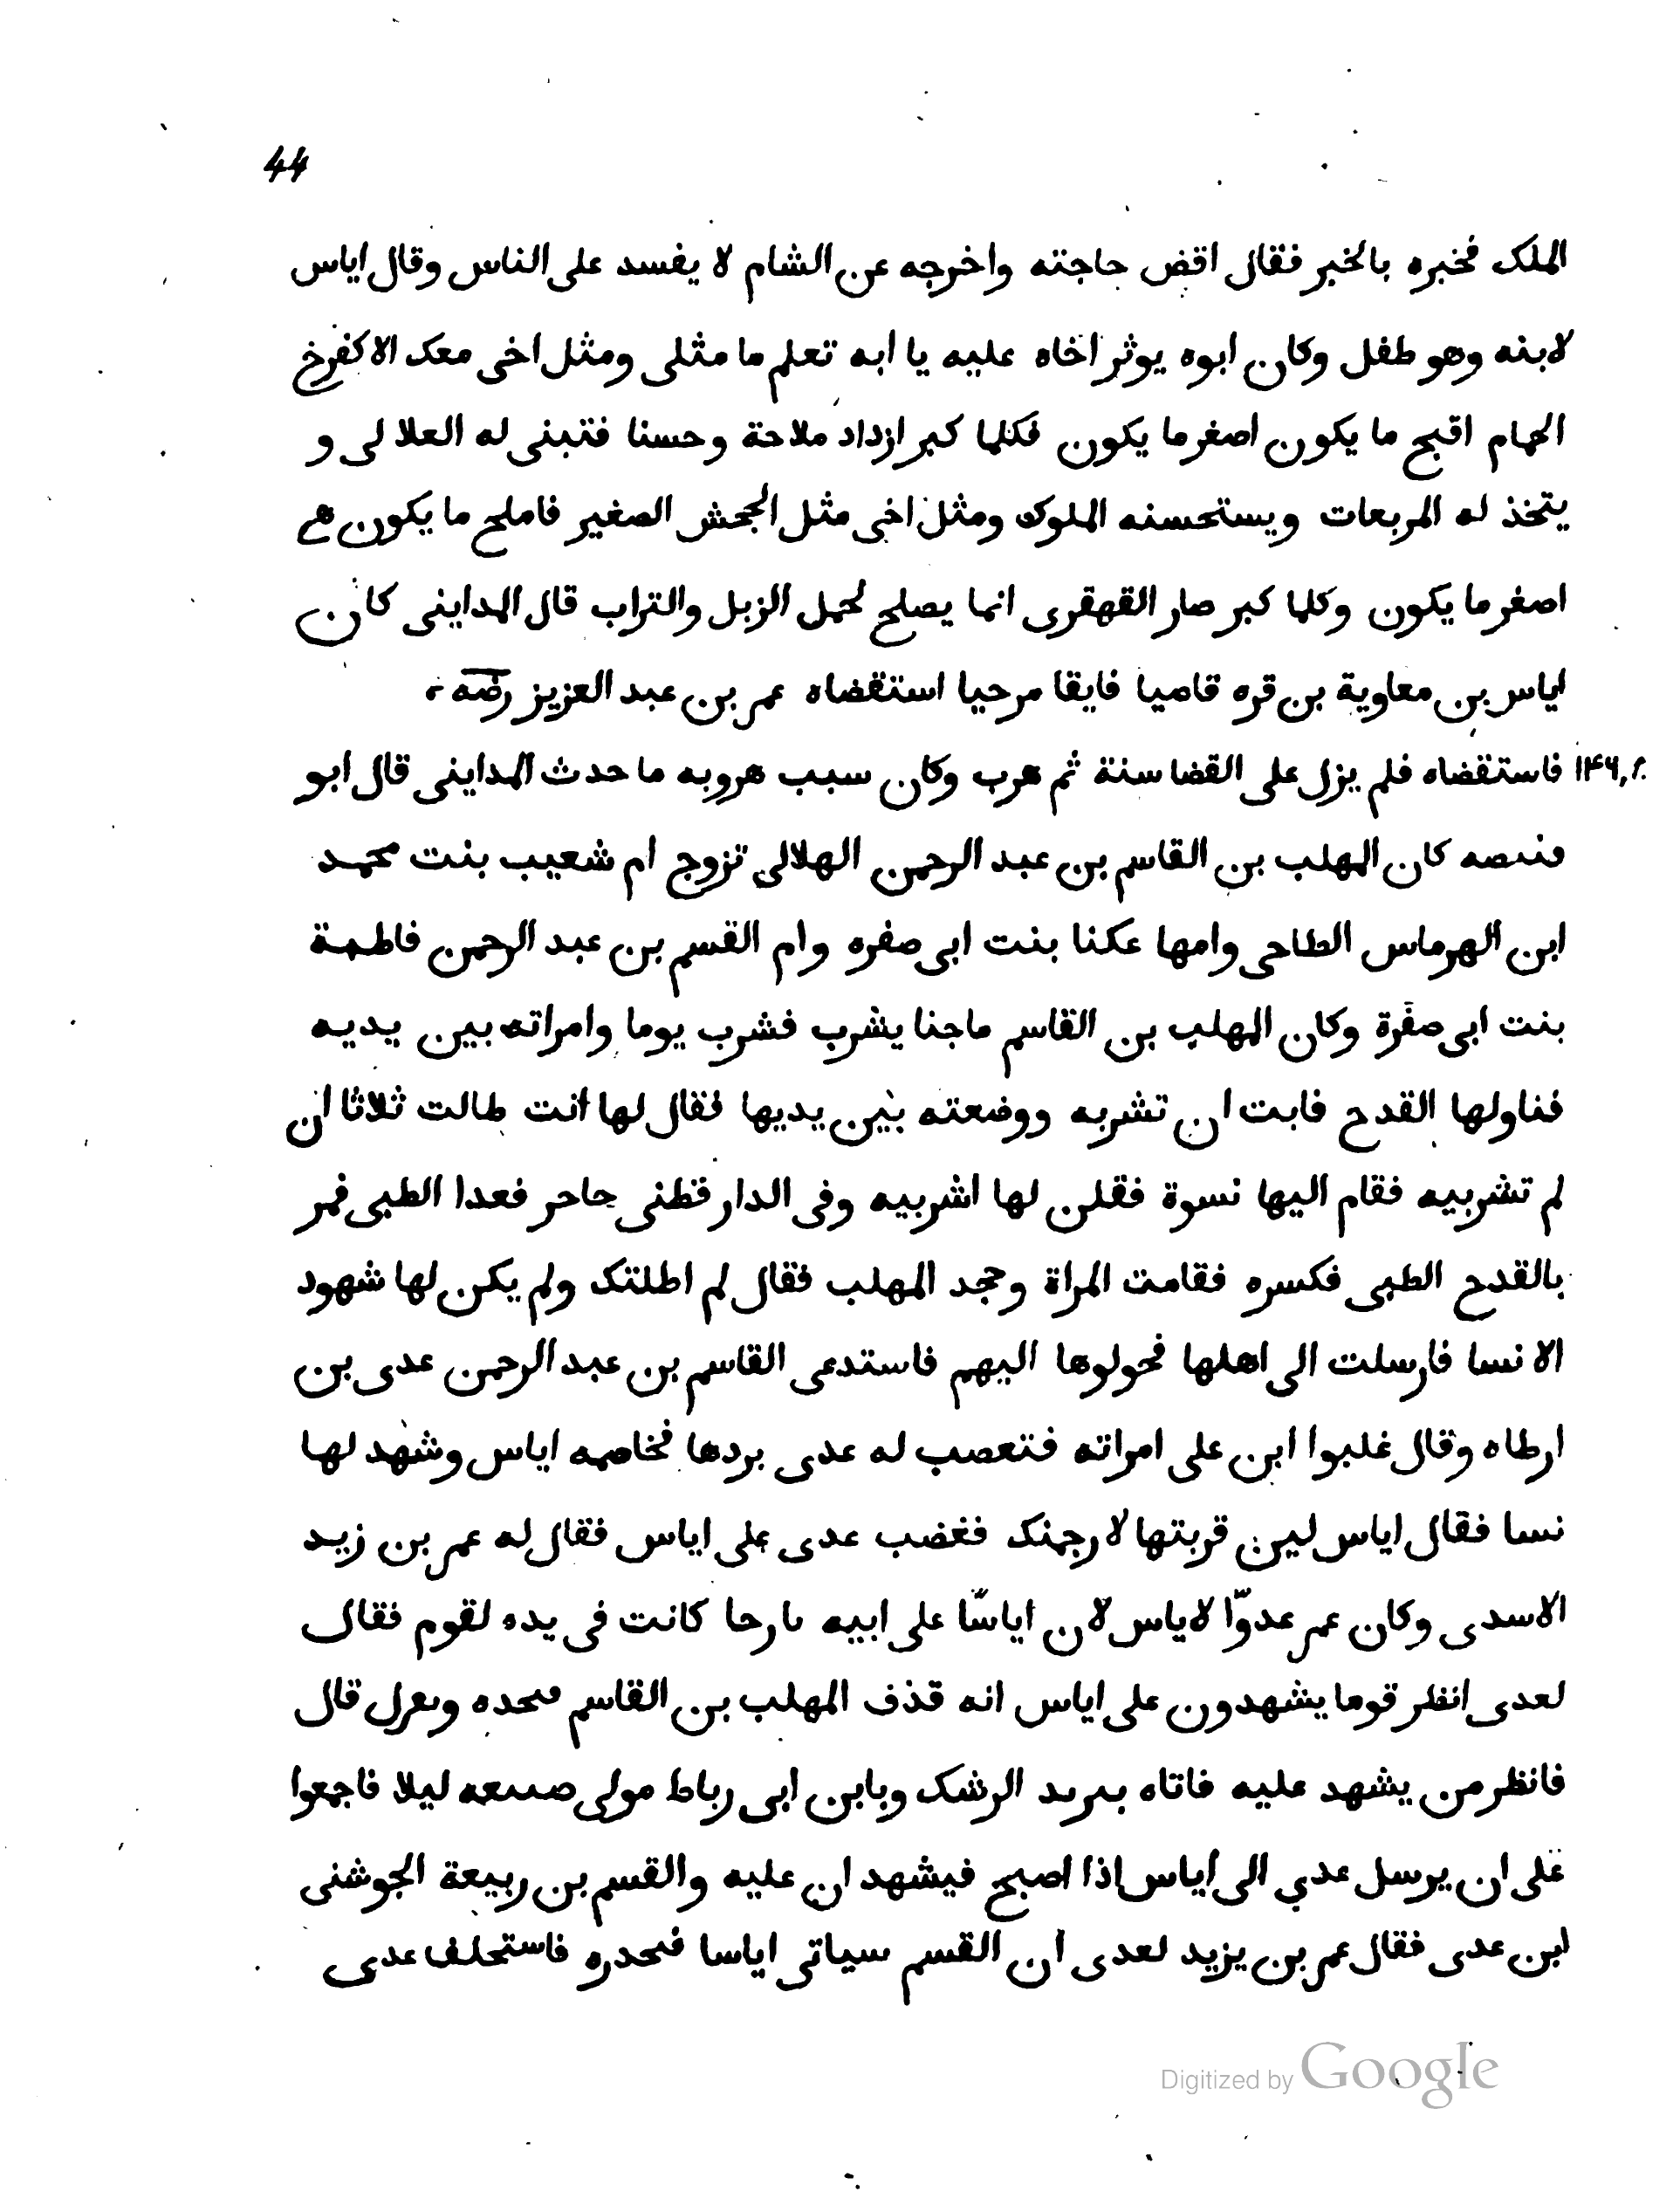 44
الملک فخبره بالخبر فقال اقض حاجته واخرجه عن الشام لا يفسد على الناس وقال اياس
لابنه وهو طفل وكان ابوه يوثر اخاه عليه يا ابه تعلم ما مثلى ومثل اخى معک الا كفرخ
الحمام اقبح ما يكون اصغر ما يكون فكلما كبر ازداد ملاحة وحسنا فتبنى له العلالى و
يتخذ له المربعات ويستحسنه الملوک ومثل اخى مثل الجحش الصغير فاملح ما يكون هى
اصغر ما يكون وكلما كبر صار القهقرى انما يصلح لحمل الزبل والتراب قال المداينى كان
اياس بن معاوية بن قره قاصيا فايقا مرحيا استقضاه عمر بن عبد العزيز رضه
م,١۴۶ فاستقضاه فلم يزل على القضا سنة ثم هرب وكان سبب هروبه ما حدث المداينى قال ابو
كان المهلب بن القاسم بن عبد الرحمن الهلالى تزوج ام شعيب بنت محمد
ابن الهرماس الطاحى وامها عكنا بنت ابى صفره وام القسم بن عبد الرحمن فاطمة
بنت ابى صفرة وكان المهلب بن القاسم ماجنا يشرب فشرب يوما وامراته بين يديه
فناولها القدح فابت ان تشربه ووضعته بين يديها فقال لها انت طالت ثلاثا ان
لم تشربيه فقام اليها نسوة فقلن لها اشربيه وفى الدار قطنى حاحر فعدا الطبى فمر
بالقدح الطبى فكسره فقامت المراة وجحد المهلب فقال لم اطلتک ولم يكن لها شهود
الا نسا فارسلت الى اهلها فحولوها اليهم فاستدعى القاسم بن عبد الرحمن عدى بن
ارطاه وقال غلبوا ابن على امراته فتعصب له عدى بردها فخاصمه اياس وشهد لها
نسا فقال اياس لين قربتها لارجمنک فغضب عدى على اياس فقال له عمر بن زيد
الاسدى وكان عمر عدوّا لاياس لان اياسًا على ابيه ىارحا كانت فى يده لقوم فقال
لعدى انظر قوما يشهدون على اياس انه قذف المهلب بن القاسم فىحده وىعزل قال
فانظر من يشهد عليه فاتاه بىرىد الرشک وبابن ابى رباط مولى ليلا فاجمعوا
على ان يرسل عدي الى اياس اذا اصبح فيشهد ان عليه والقسم بن ربيعة الجوشنى
ابن عدى فقال عمر بن يزيد لعدى ان القسم سياتى اياسا فىحدره فاستحلف عدى
Digitized by Google